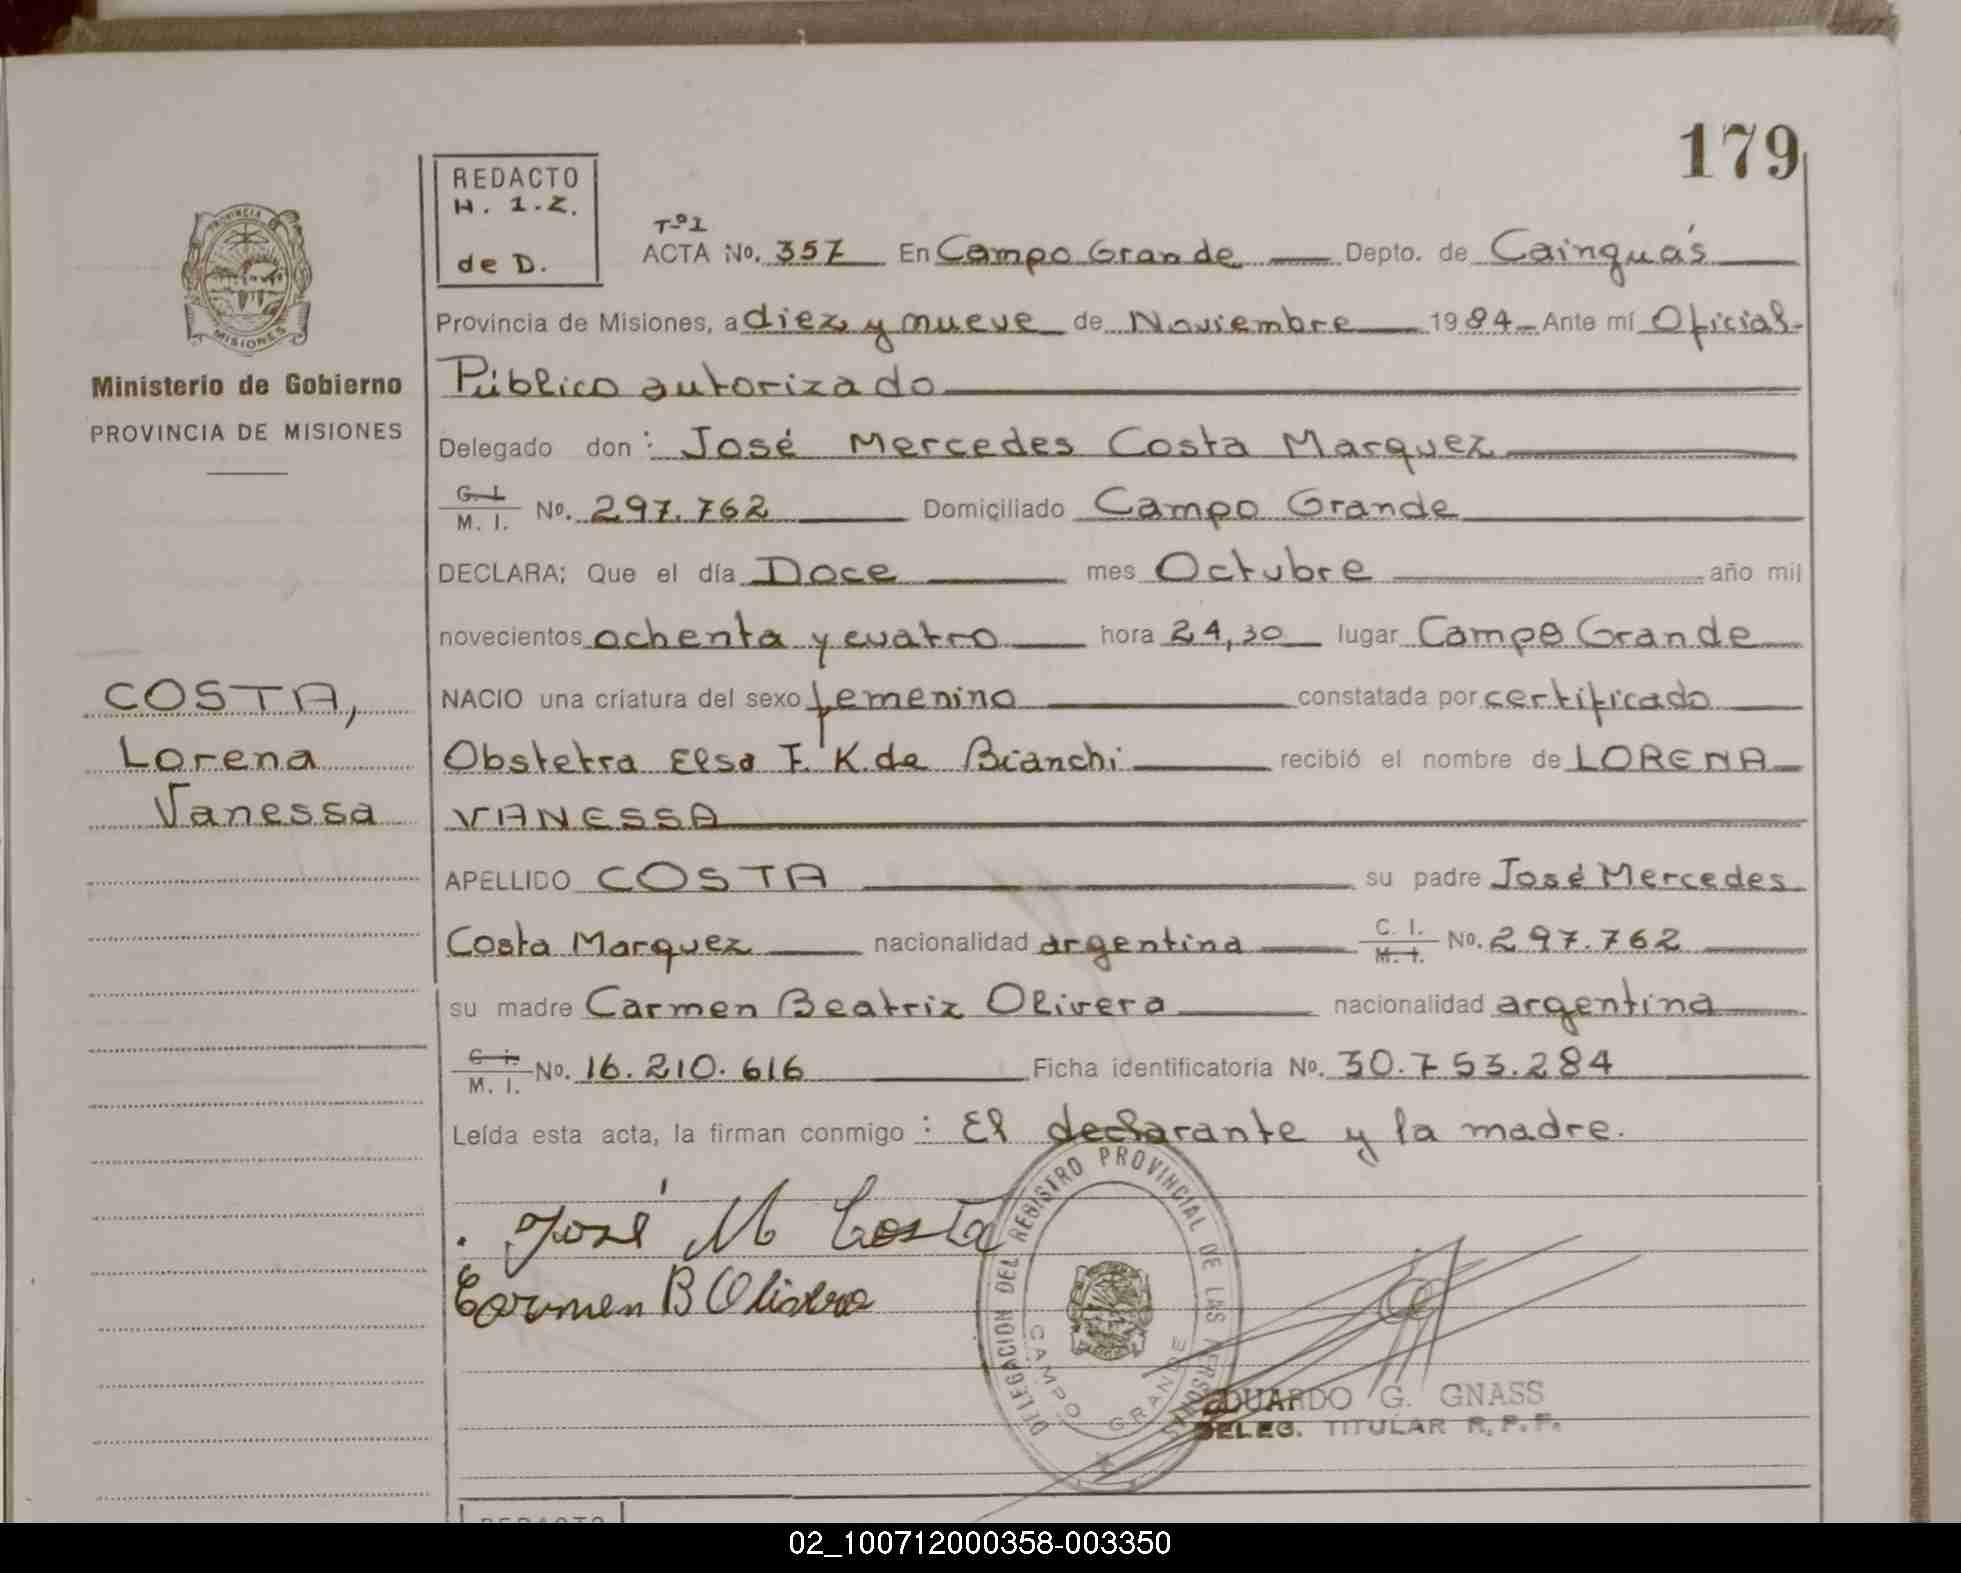 179
REDACTO
H. 1.Z.
de D.
Tº1
ACTA No. 357 En Campo Grande Depto. de Cainguás
Provincia de Misiones, a diez y nueve de Noviembre 1984 Ante mí Oficial
Público autorizado
Delegado don: José Mercedes Costa Marquez
C. I.
M. I. No. 297.762 Domiciliado Campo Grande
DECLARA; Que el día Doce mes Octubre año mil
novecientos ochenta y cuatro hora 24,30 lugar Campo Grande
NACIO una criatura del sexo femenino constatada por certificado
Obstetra Elsa F. K. de Bianchi recibió el nombre de LORENA
VANESSA
APELLIDO COSTA su padre José Mercedes
Costa Marquez nacionalidad argentina C. I.
M. I. No. 297.762
su madre Carmen Beatriz Olivera nacionalidad argentina
C. I.
M. I. No. 16.210.616 Ficha identificatoria No. 30.753.284
Leída esta acta, la firman conmigo: El declarante y la madre.
José M Costa
Carmen B Olivera
DELEGACION DEL REGISTRO PROVINCIAL DE LAS PERSONAS
CAMPO GRANDE
EDUARDO G. GNASS
DELEG. TITULAR R.P.P.
PROVINCIA
MISIONES
Ministerio de Gobierno
PROVINCIA DE MISIONES
COSTA,
Lorena
Vanessa
REDACTO
02_100712000358-003350